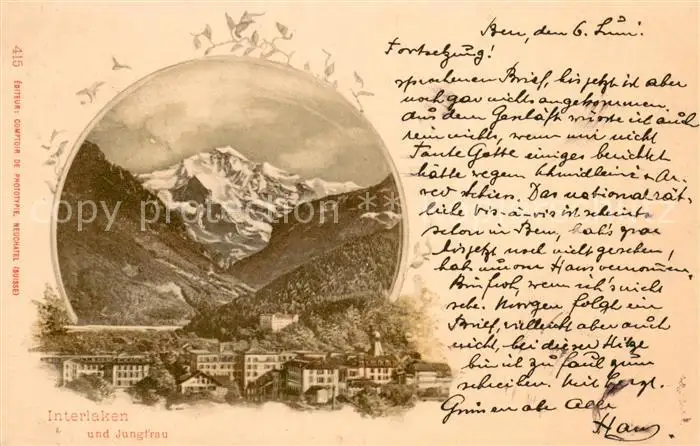 Bern, den 6. Juni.
Fortsetzung!
sprochenen Brief, bis jetzt ist aber
noch gar nichts angekommen.
Aus dem Geschäft wüsste ich auch
rein nichts, wenn mir nicht
Tante Gotte einiges berichtet
hätte wegen
Das nationalrät-
liche vis-à-vis ist scheint's
schon in Bern, hab's
bis jetzt noch nicht gesehen,
hab nur von Hans vernommen.
Bin froh, wenn ich's nicht
sehe. Morgen folgt ein
Brief, vielleicht aber auch
nicht, bei dieser Hitze
bin ich zu faul zum
schreiben. Mit herzl.
Grüssen an Alle
Hans.
415 ÉDITEUR: COMPTOIR DE PHOTOTYPIE, NEUCHATEL (SUISSE)
Interlaken
und Jungfrau